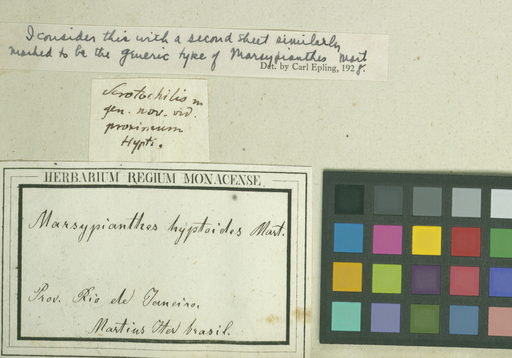 I consider this with a second sheet similarly
marked to be the generic type of Marsypianthes Mart
Det. by Carl Epling, 1928.
gen. nov. vid.
proximum
Hypti.
HERBARIUM REGIUM MONACENSE.
Marsypianthes hyptoides Mart.
Prov. Rio de Janeiro.
Martius Iter brasil.